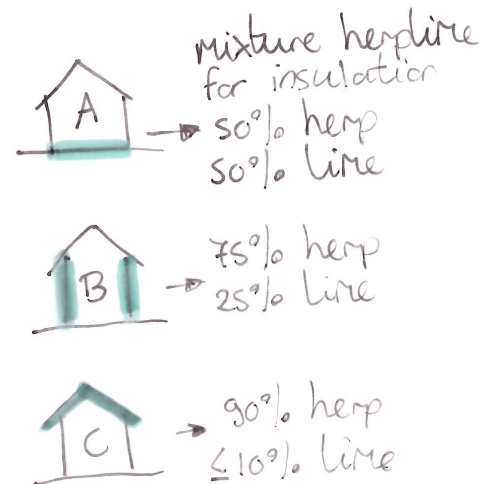 mixture hempline
for insulation
A
50% hemp
50% lime
B
75% hemp
25% lime
C
90% hemp
≤10% lime